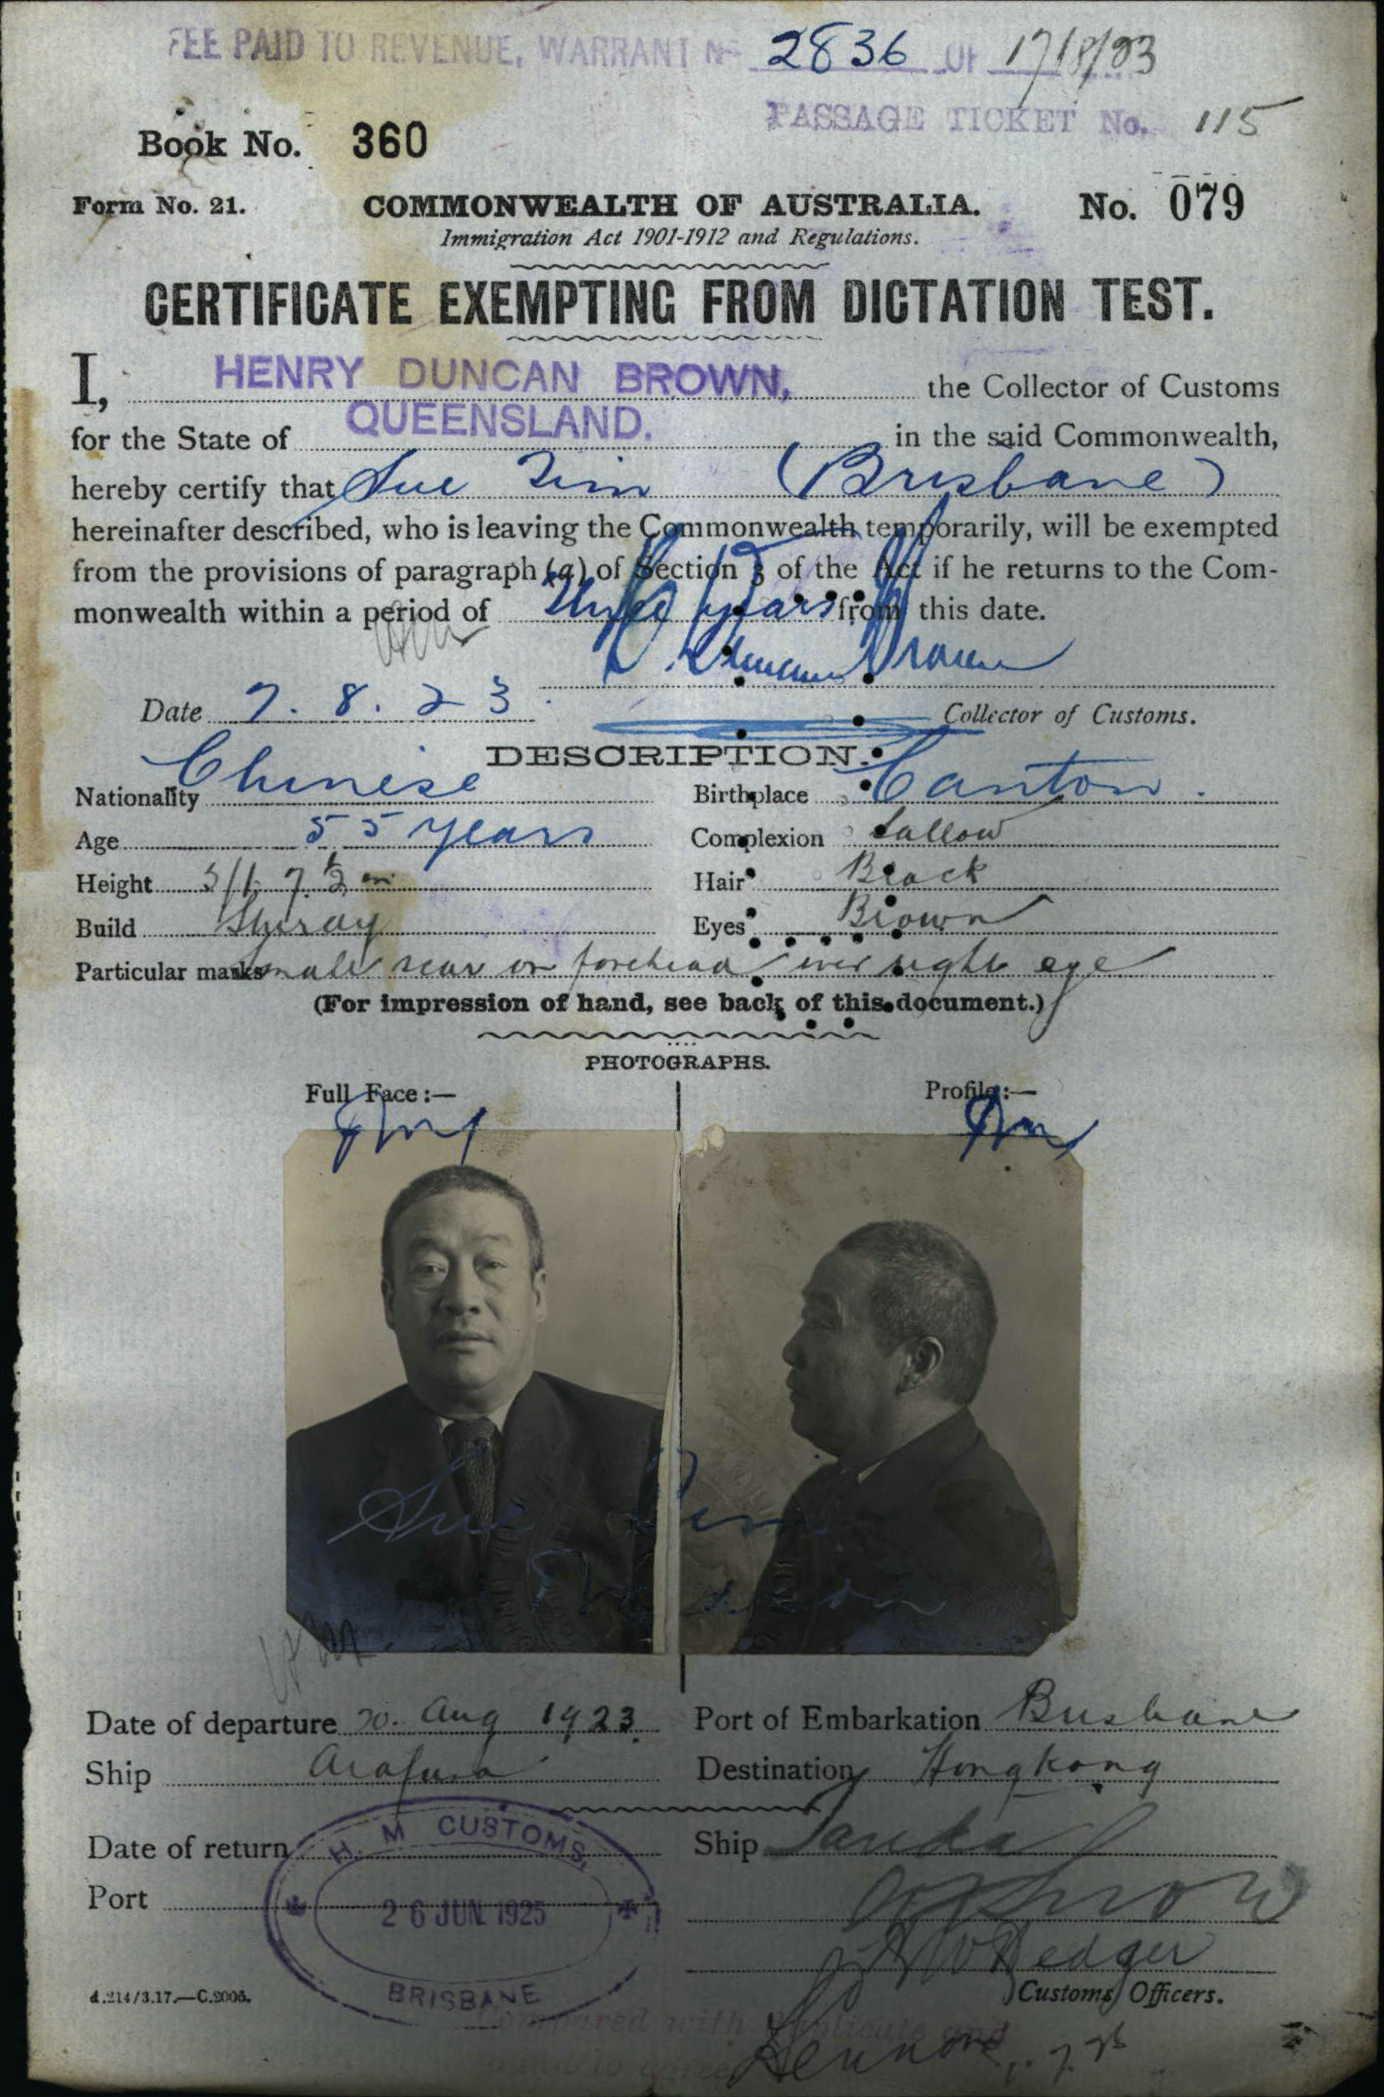 FEE PAID TO REVENUE, WARRANT No 2836 OF 17/8/23
PASSAGE TICKET No. 115
Book No. 360
Form No. 21. COMMONWEALTH OF AUSTRALIA. No. 079
Immigration Act 1901-1912 and Regulations.
CERTIFICATE EXEMPTING FROM DICTATION TEST.
I, HENRY DUNCAN BROWN, the Collector of Customs
for the State of QUEENSLAND. in the said Commonwealth,
hereby certify that Sue Tim (Brisbane)
hereinafter described, who is leaving the Commonwealth temporarily, will be exempted
from the provisions of paragraph (a) of Section 3 of the Act if he returns to the Com-
monwealth within a period of Three years from this date.
H. Duncan Brown
Date 7.8.23. Collector of Customs.
DESCRIPTION.
Nationality Chinese Birthplace Canton.
Age 55 years Complexion Sallow
Height 5 ft 7 1/2 in Hair Black
Build Sturdy Eyes Brown
Particular marks small scar on forehead over right eye
(For impression of hand, see back of this document.)
PHOTOGRAPHS.
Full Face:— Profile:—
Sue Tim
Date of departure 20. Aug 1923. Port of Embarkation Brisbane
Ship Arafura Destination Hongkong
Date of return Ship Tanda
Port
H. M CUSTOMS,
26 JUN 1925
BRISBANE
Hedger
Customs Officers.
d.214/3.17.—C.2006.
Compared with duplicate and